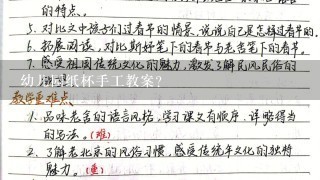 的特点。
5. 对比文中孩子们过春节的情景,说说自己是怎样过春节的。
6. 拓展阅读,对比斯好笔下的春节与老舍笔下的春节。
7. 感受祖国传统文化的魅力,激发了解民风民俗的
幼儿园纸杯手工教案?
教学重难点
1. 品味老舍的语言风格,学习课文有顺序、详略得当
的写法。(难)
2. 了解老北京的风俗习惯,感受传统年文化的独特
魅力。(重)